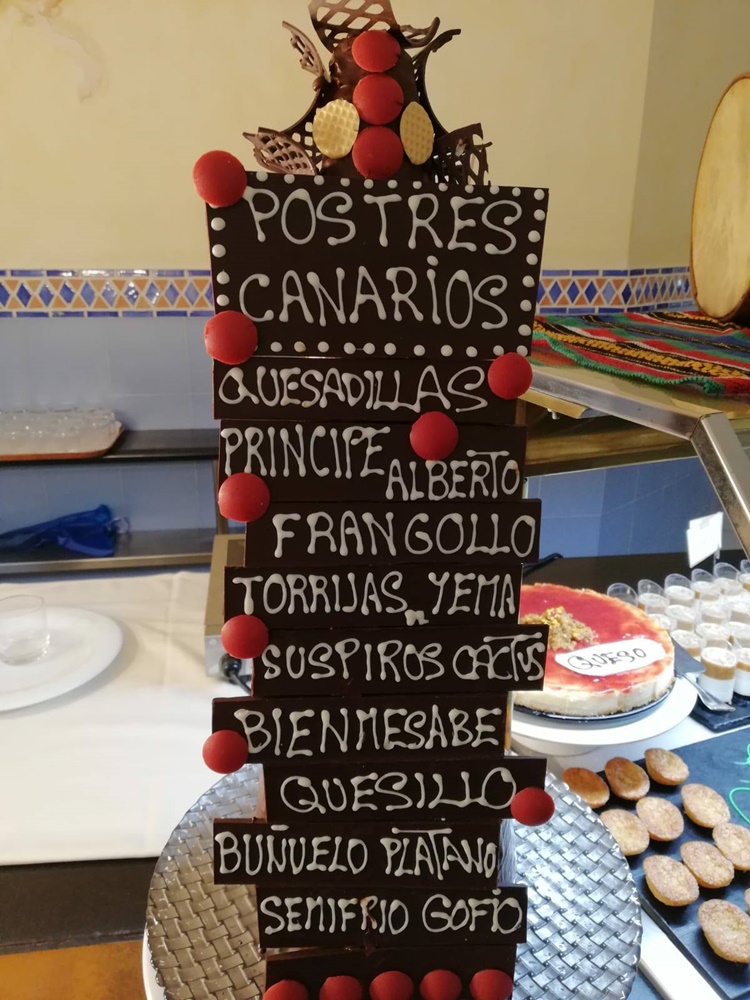 POSTRES
CANARIOS
QUESADILLAS
PRINCIPE ALBERTO
FRANGOLLO
TORRIJAS YEMA
SUSPIROS CACTUS
BIENMESABE
QUESILLO
BUÑUELO PLATANO
SEMIFRIO GOFIO
QUESO